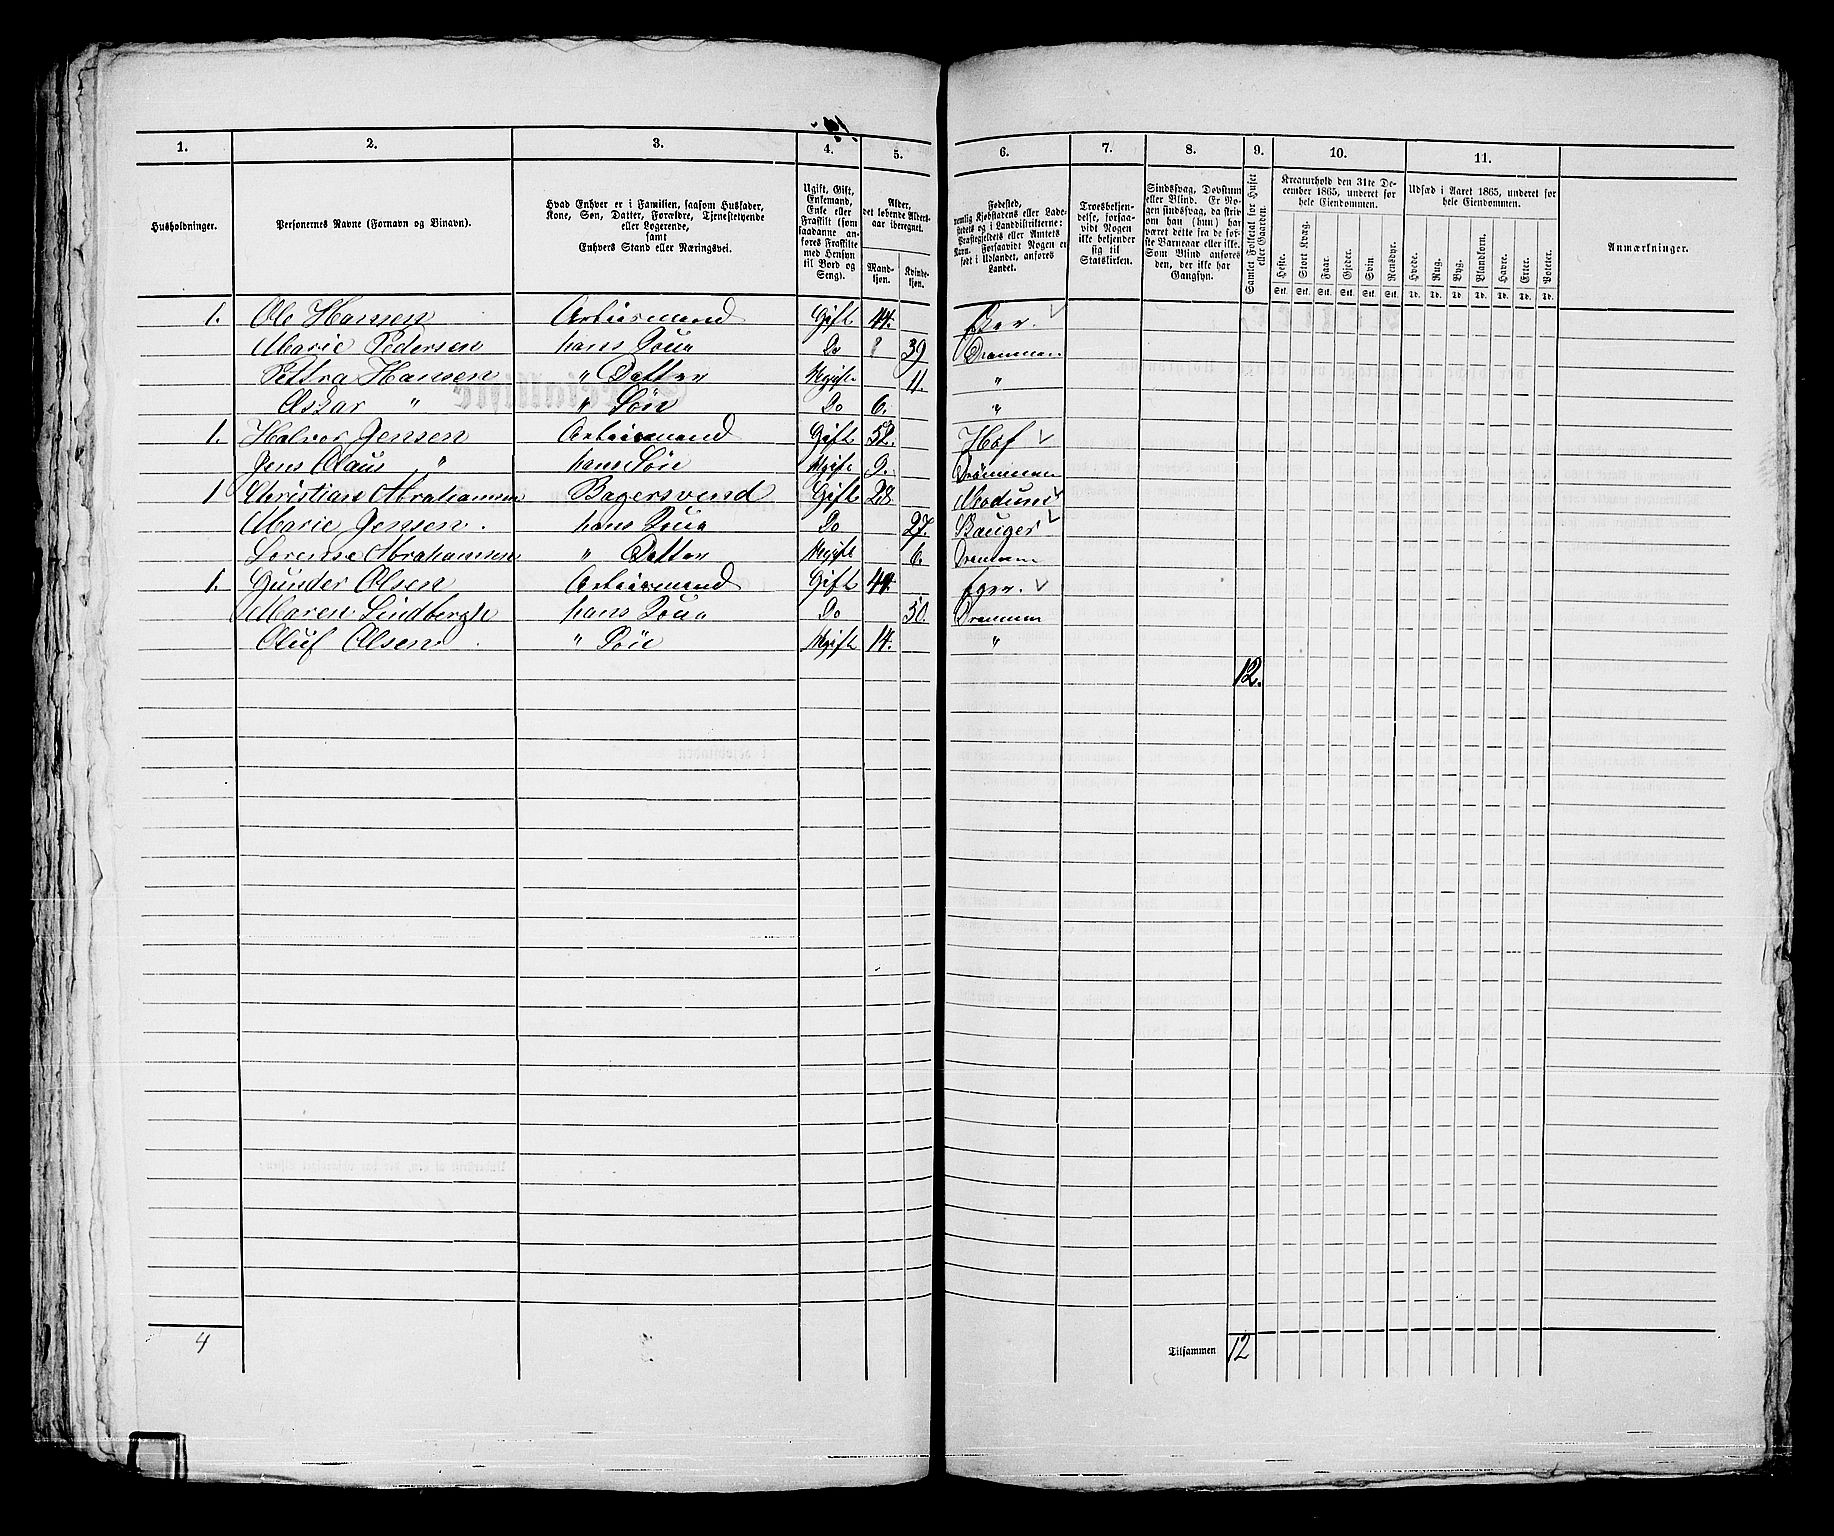 1. 2. 3. 4. 5. 6. 7. 8. 9. 10. 11.
Husholdninger.
Personernes Navne (Fornavn og Binavn).
Hvad Enhver er i Familien, saasom Husfader,
Kone, Søn, Datter, Forældre, Tjenestetyende
eller Logerende,
samt
Enhvers Stand eller Næringsvei.
Ugift, Gift,
Enkemand,
Enke eller
Fraskilt (som
saadanne an-
føres Fraskilte
med Hensyn
til Bord og
Seng).
Alder,
det løbende Alders-
aar iberegnet.
Mand-
kjøn.
Kvinde-
kjøn.
Fødested,
nemlig Kjøbstadens eller Lade-
stedets og i Landdistrikterne:
Præstegjeldets eller Amtets
Navn. Forsaavidt Nogen er
født i Udlandet, anføres
Landet.
Troesbekjen-
delse, forsaa-
vidt Nogen
ikke bekjender
sig til
Statskirken.
Sindssvag, Døvstum
eller Blind. Er No-
gen sindssvag, da skriv
om han (hun) har
været dette fra de før-
ste Barneaar eller ikke.
Som Blind anføres
den, der ikke har
Gangsyn.
Samlet Folketal for Huset
eller Gaarden.
Kreaturhold den 31te De-
cember 1865, underet for
hele Eiendommen.
Heste. Stort Kvæg. Faar. Gjeder. Svin Rensdyr.
Stk. Stk. Stk. Stk. Stk. Stk.
Udsæd i Aaret 1865, underet for
hele Eiendommen.
Hvede. Rug. Byg. Blandkorn. Havre. Erter. Poteter.
Td. Td. Td. Td. Td. Td. Td.
Anmærkninger.
1. Ole Hansen Arbeismand Gift 44. Eger.
Marie Pedersen hans Kona Do 39 Drammen
Pettra Hansen " Datter Ugift 11. "
Oskar " " Søn Do 6. "
1. Halvor Jensen Arbeismand Gift 52. Hof
Jens Claus " hans Søn Ugift 9. Drammen
1 Christian Abrahamsen Bagersvend Gift 28 Modum
Marie Jensen. hans Kona Do 27. Bauger
Lorense Abrahamsen " Datter Ugift 6. Drammen
1. Gunder Olsen Arbeismand Gift 44. Eger.
Maren Lindbergh hans Kona Do 50. Drammen
Oluf Olsen " Søn Ugift 14. "
12.
4 Tilsammen 12